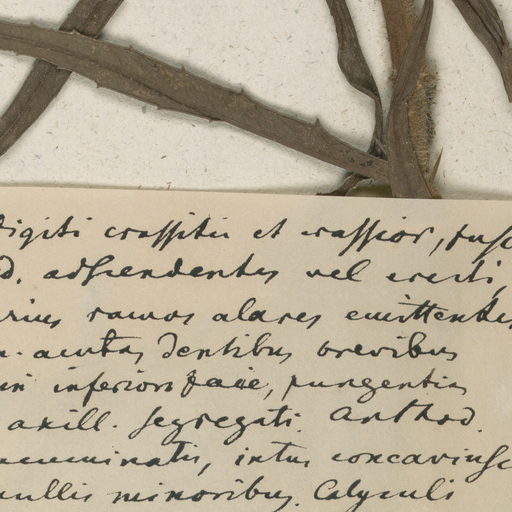 digiti crassitie et crassior, fusc
d. adscendentes vel erecti,
rius ramos alares emittentes
acutas dentibus brevibus
in inferiori facie, pungentia
axill. segregati. Anthod.
acuminatis, intus concaviusc
nullis minoribus. Calyculi